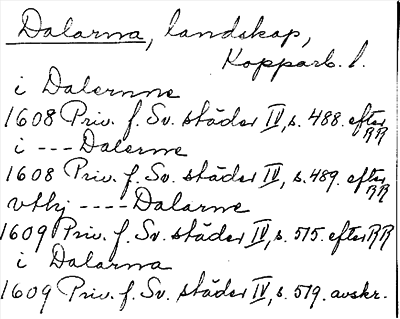 Dalarna, landskap,
Kopparb. l.
i Dalernne
1608 Priv. f. Sv. städer IV, s. 488. efter RR
i --- Dalerne
1608 Priv. f. Sv. städer IV, s. 489. efter RR
vthj ---- Dalarne
1609 Priv. f. Sv. städer IV, s. 575. efter RR
i Dalarna
1609 Priv. f. Sv. städer IV, s. 519. avskr.